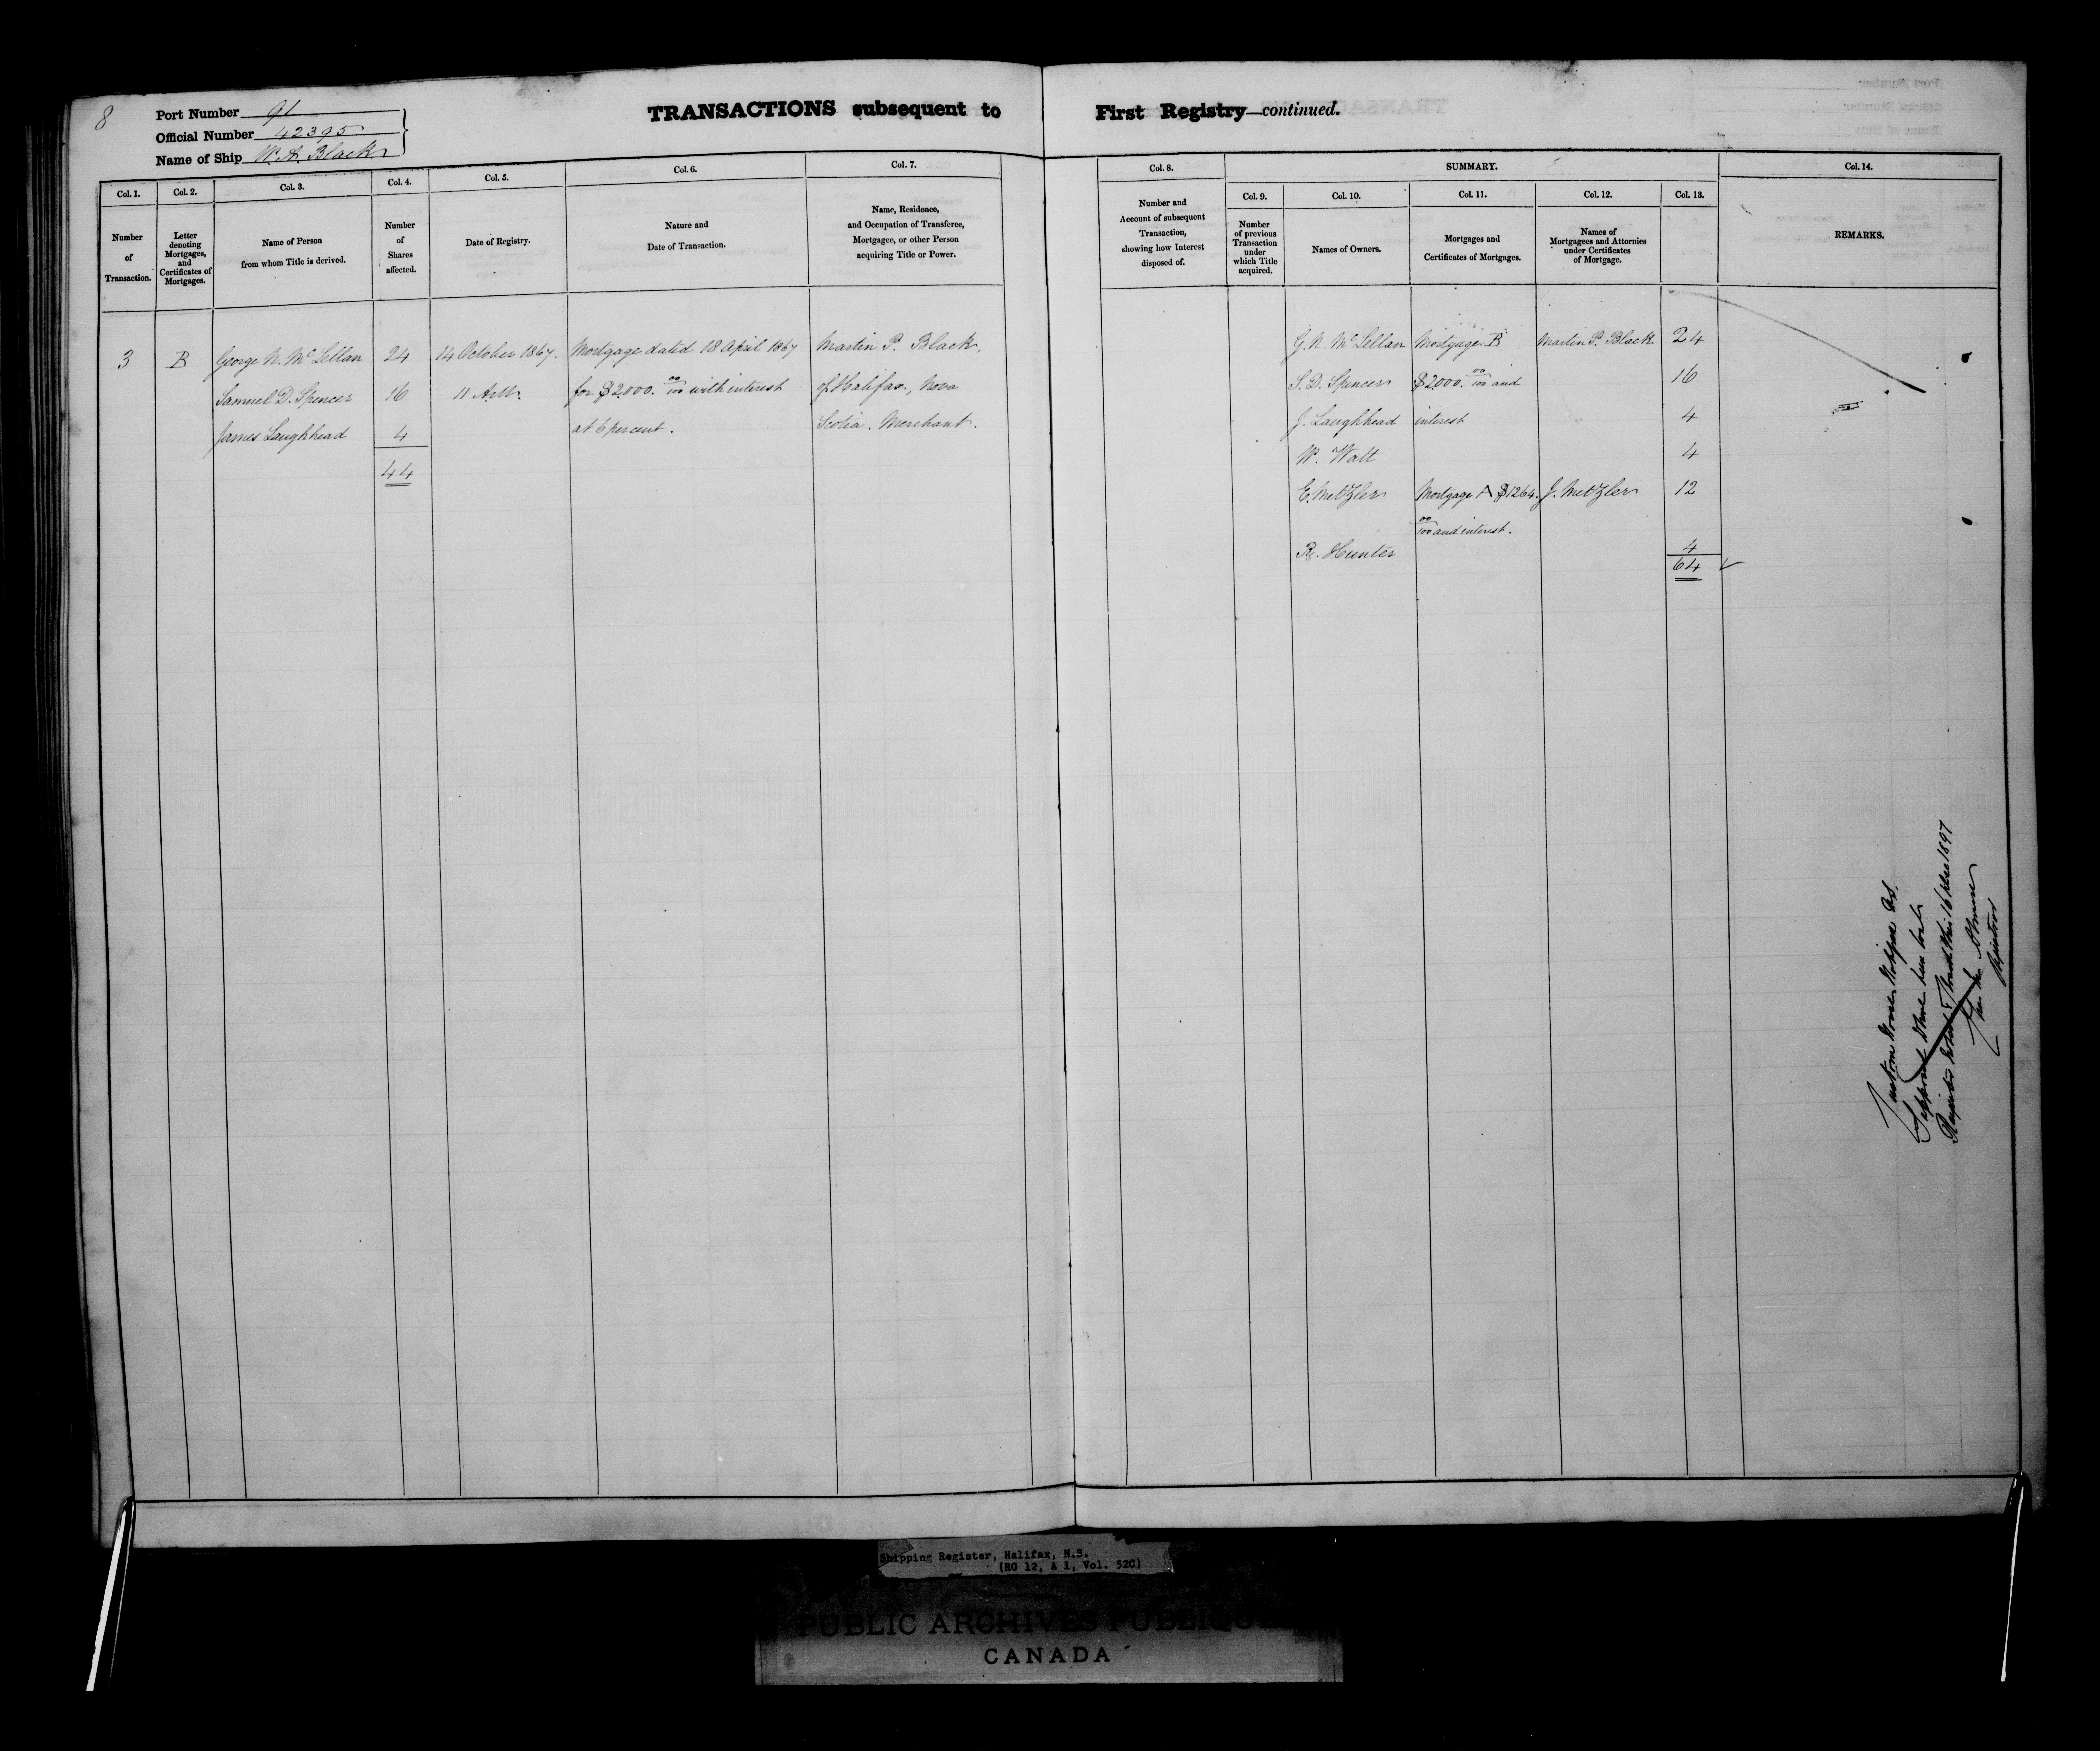 8
Port Number 91
Official Number 42395
Name of Ship W. A. Black
TRANSACTIONS subsequent to First Registry—continued.
Col. 1. Col. 2. Col. 3. Col. 4. Col. 5. Col. 6. Col. 7.
Number of Transaction.
Letter denoting Mortgages, and Certificates of Mortgages.
Name of Person from whom Title is derived.
Number of Shares affected.
Date of Registry.
Nature and Date of Transaction.
Name, Residence, and Occupation of Transferee, Mortgagee, or other Person acquiring Title or Power.
3 B George N. McLellan 24 14 October 1867. Mortgage dated 18 April 1867 Martin P. Black,
Samuel D. Spencer 16 11 A.M. for $2000. 00/100 with interest of Halifax, Nova
James Laughhead 4 at 6 per cent. Scotia. Merchant.
44
Col. 8. SUMMARY. Col. 14.
Col. 9. Col. 10. Col. 11. Col. 12. Col. 13.
Number and Account of subsequent Transaction, showing how Interest disposed of.
Number of previous Transaction under which Title acquired.
Names of Owners.
Mortgages and Certificates of Mortgages.
Names of Mortgagees and Attornies under Certificates of Mortgage.
REMARKS.
G. N. McLellan Mortgage B Martin P. Black 24
S. D. Spencer $2000. 00/100 and 16
J. Laughhead interest 4
W. Watt 4
E. Metzler Mortgage A $1264. J. Metzler 12
00/100 and interest.
R. Hunter 4
64
Custom House Halifax NS.
Supposed to have been lost
Register closed this 16 1897
Registrar
Shipping Register, Halifax, N.S.
(RG 12, A 1, Vol. 52C)
PUBLIC ARCHIVES PUBLIQUES
CANADA